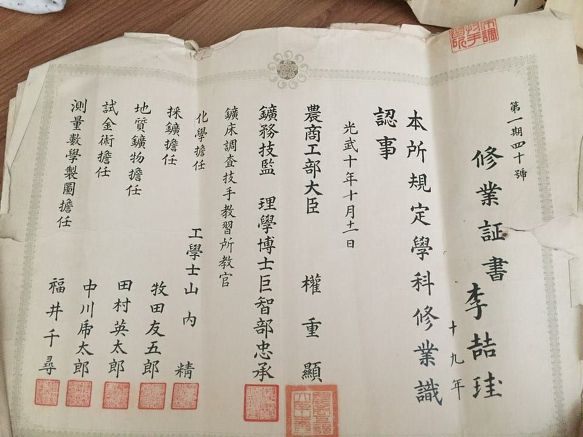 第一期四十號
修業証書
李喆珪
十九年
本所規定學科修業識
認事
光武十年十月十一日
農商工部大臣 權重顯
鑛務技監 理學博士巨智部忠承
鑛床調查技手教習所教官
化學擔任 工學士山內 精
採鑛擔任 牧田友五郎
地質鑛物擔任 田村英太郎
試金術擔任 中川庽太郎
測量數學製圖擔任 福井千尋